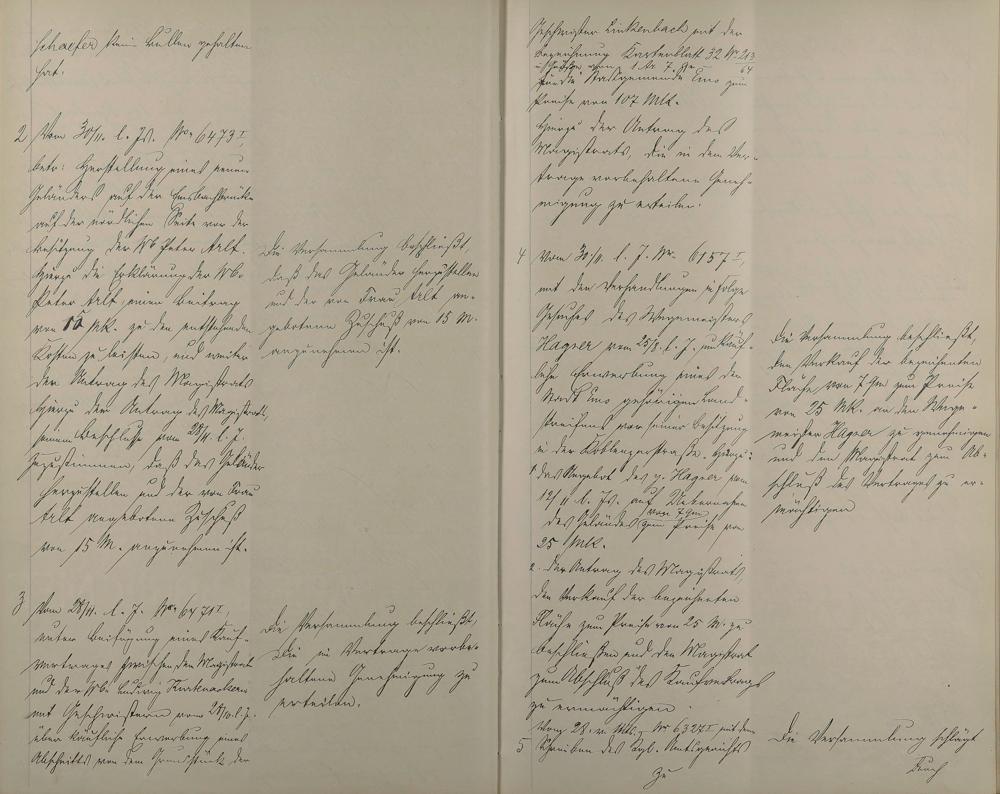 Schaefer, kein Bullen gehalten
hat.
2 Vom 30/11. l. Js. No. 6473 I,
betr: Herstellung eines neuen
Geländers auf der Emsbachbrücke
auf der nördlichen Seite vor der
Besitzung der Wb Peter Arlt.
Hierzu die Erklärung der Wb.
Peter Arlt, einen Beitrag
von 15 Mk. zu den entstehenden
Kosten zu leisten, und weiter
der Antrag des Magistrats
hierzu der Antrag des Magistrats,
seinem Beschlusse vom 28/11. l. J.
zuzustimmen, daß das Geländer
herzustellen und der von Frau
Arlt angebotene Zuschuß
von 15 M. anzunehmen ist.
Die Versammlung beschließt,
daß das Geländer herzustellen
und der von Frau Arlt an-
gebotene Zuschuß von 15 M.
anzunehmen ist.
3 Vom 28/11. l. J. No. 6471 I,
unter Beifügung eines Kauf-
vertrages zwischen dem Magistrat
und der Wb Ludwig
mit Geschwistern vom l. J.
über käufliche Erwerbung eines
Abschnitts von dem Grundstück der
Die Versammlung beschließt,
die im Vertrage vorbe-
haltene Genehmigung zu
erteilen.
Geschwister Linkenbach mit der
Bezeichnung Kartenblatt 32 No 213/64
von 1 Ar 7 qm
für die Stadtgemeinde Ems zum
Preise von 107 Mk.
Hierzu der Antrag des
Magistrats, die in dem Ver-
trage vorbehaltene Geneh-
migung zu erteilen.
4 Vom 30/11. l. J. No. 6157 I,
mit den Verhandlungen infolge
Gesuches des Wegemeisters
Hagner vom 25/8. l. J. um käuf-
liche Erwerbung eines der
Stadt Ems gehörigen Land-
streifens vor seiner Besitzung
in der Coblenzerstraße. Hierzu:
1. das Angebot des p. Hagner vom
12/11 l. Js. auf Uebernahme
des Geländes von 7 qm zum Preise von
25 Mk.
2. der Antrag des Magistrats,
den Verkauf der bezeichneten
Fläche zum Preise von 25 M. zu
beschließen und den Magistrat
zum Abschluß des Kaufvertrags
zu ermächtigen.
Die Versammlung beschließt,
den Verkauf der bezeichneten
Fläche von 7 qm zum Preise
von 25 Mk. an den Wege-
meister Hagner zu genehmigen
und den Magistrat zum Ab-
schluß des Vertrages zu er-
mächtigen
5 Vom 28. v. Mts. No 6327 I mit dem
Schreiben des Kgl. Amtsgerichts
zu
Die Versammlung schlägt
durch